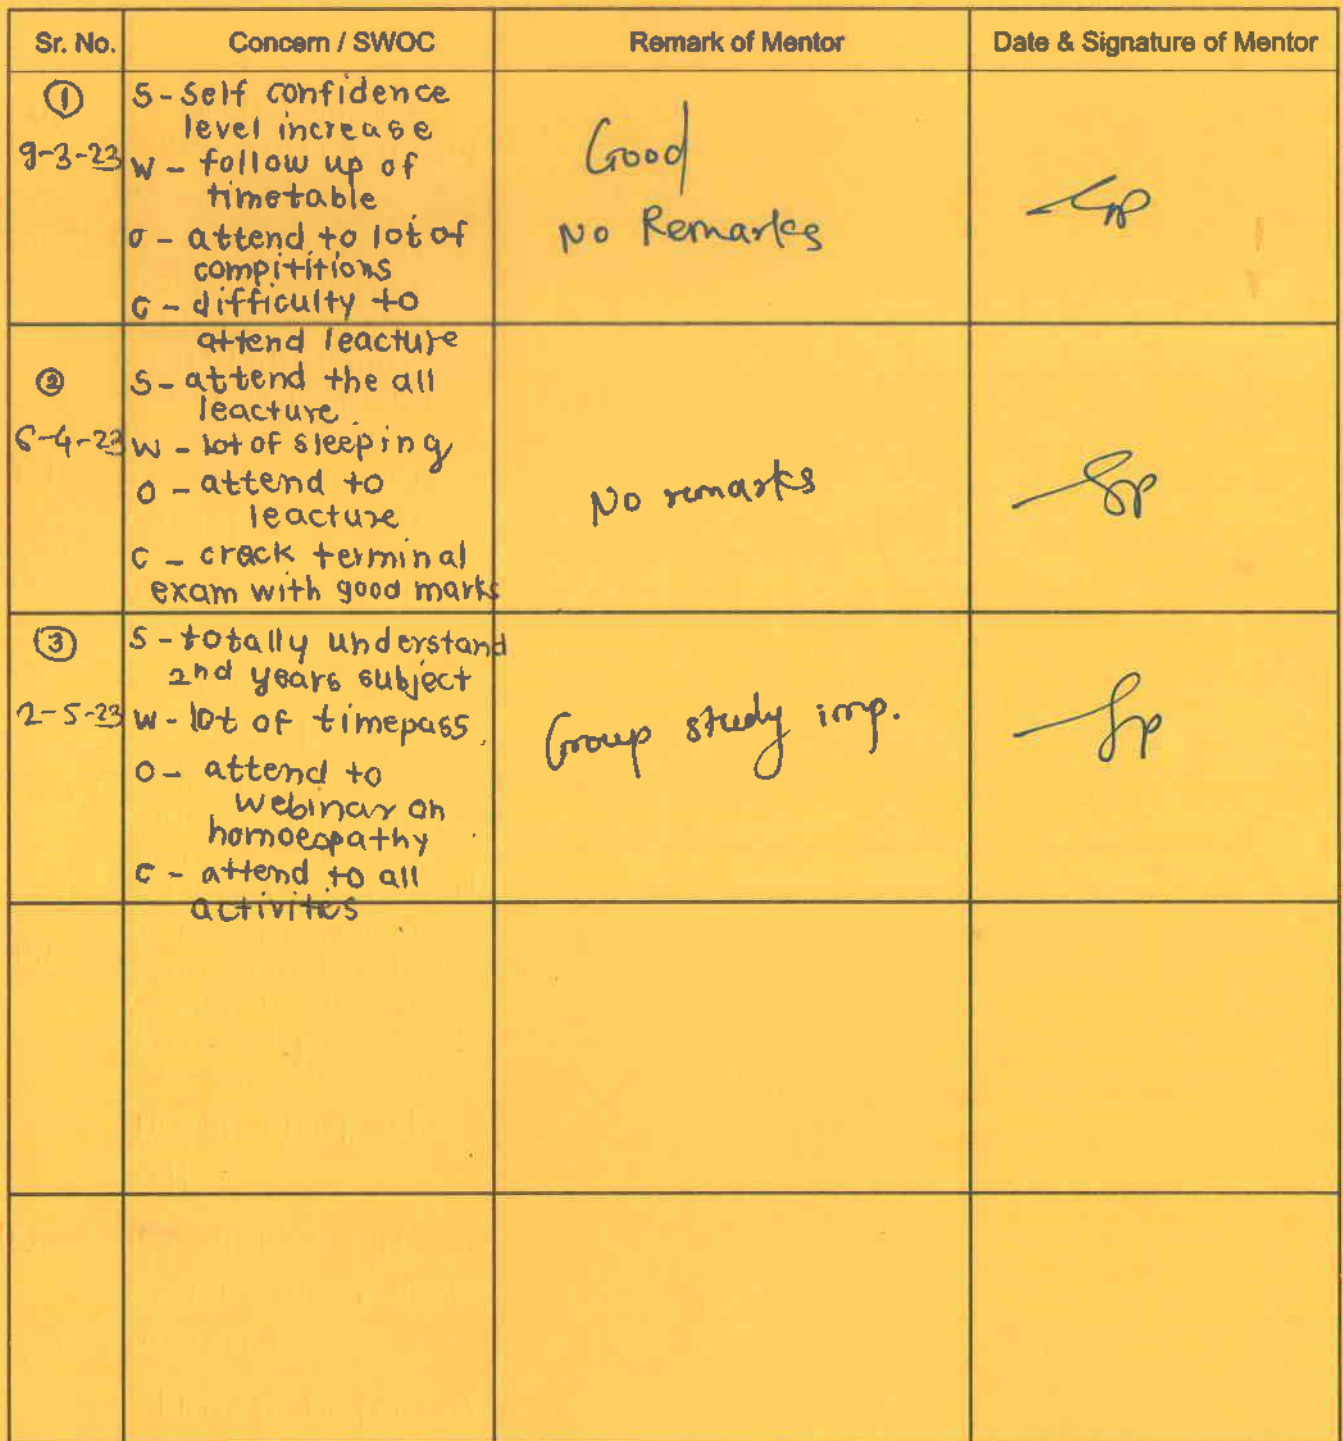 Sr. No. Concern / SWOC Remark of Mentor Date & Signature of Mentor
①
9-3-23
S - Self confidence
level increase
W - follow up of
timetable
O - attend to lot of
compititions
C - difficulty to
attend leacture
Good
No Remarks
②
-4-23
S - attend the all
leacture.
W - lot of sleeping
O - attend to
leacture
C - crack terminal
exam with good marks
No remarks
③
2-5-23
S - totally understand
2nd years subject
W - lot of timepass.
O - attend to
webinar on
homoeopathy
C - attend to all
activites
Group study imp.